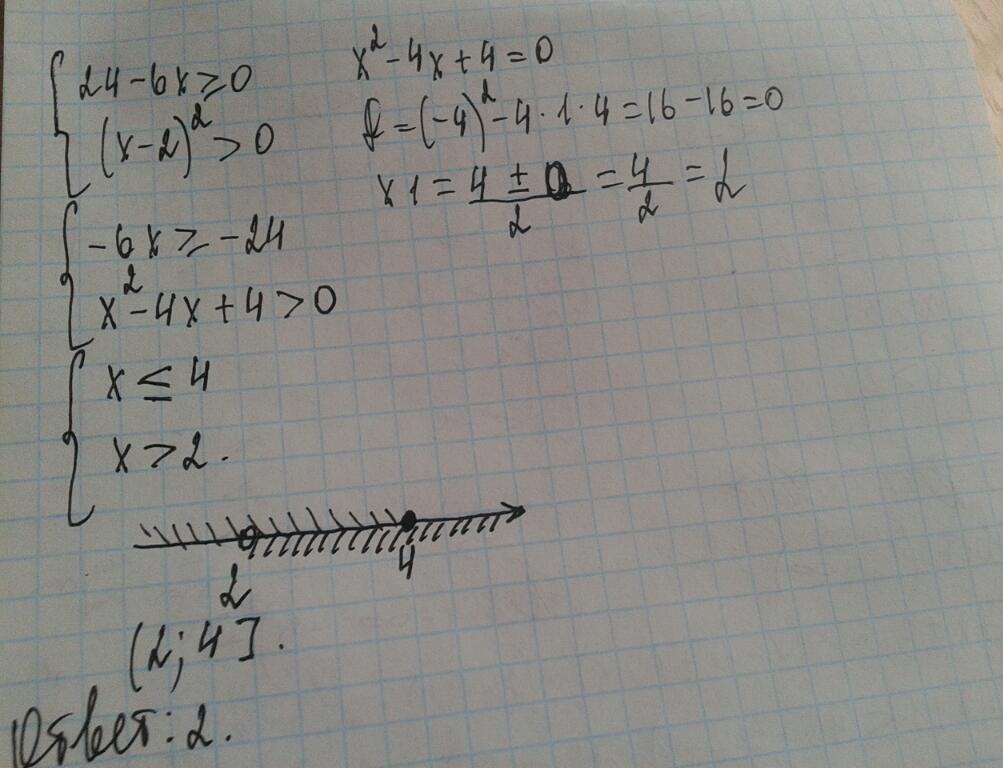 24-6x≥0
(x-2)²>0
x²-4x+4=0
D=(-4)²-4·1·4=16-16=0
x1=(4±0)/2=4/2=2
-6x≥-24
x²-4x+4>0
x≤4
x>2.
2 4
(2;4].
Ответ: 2.